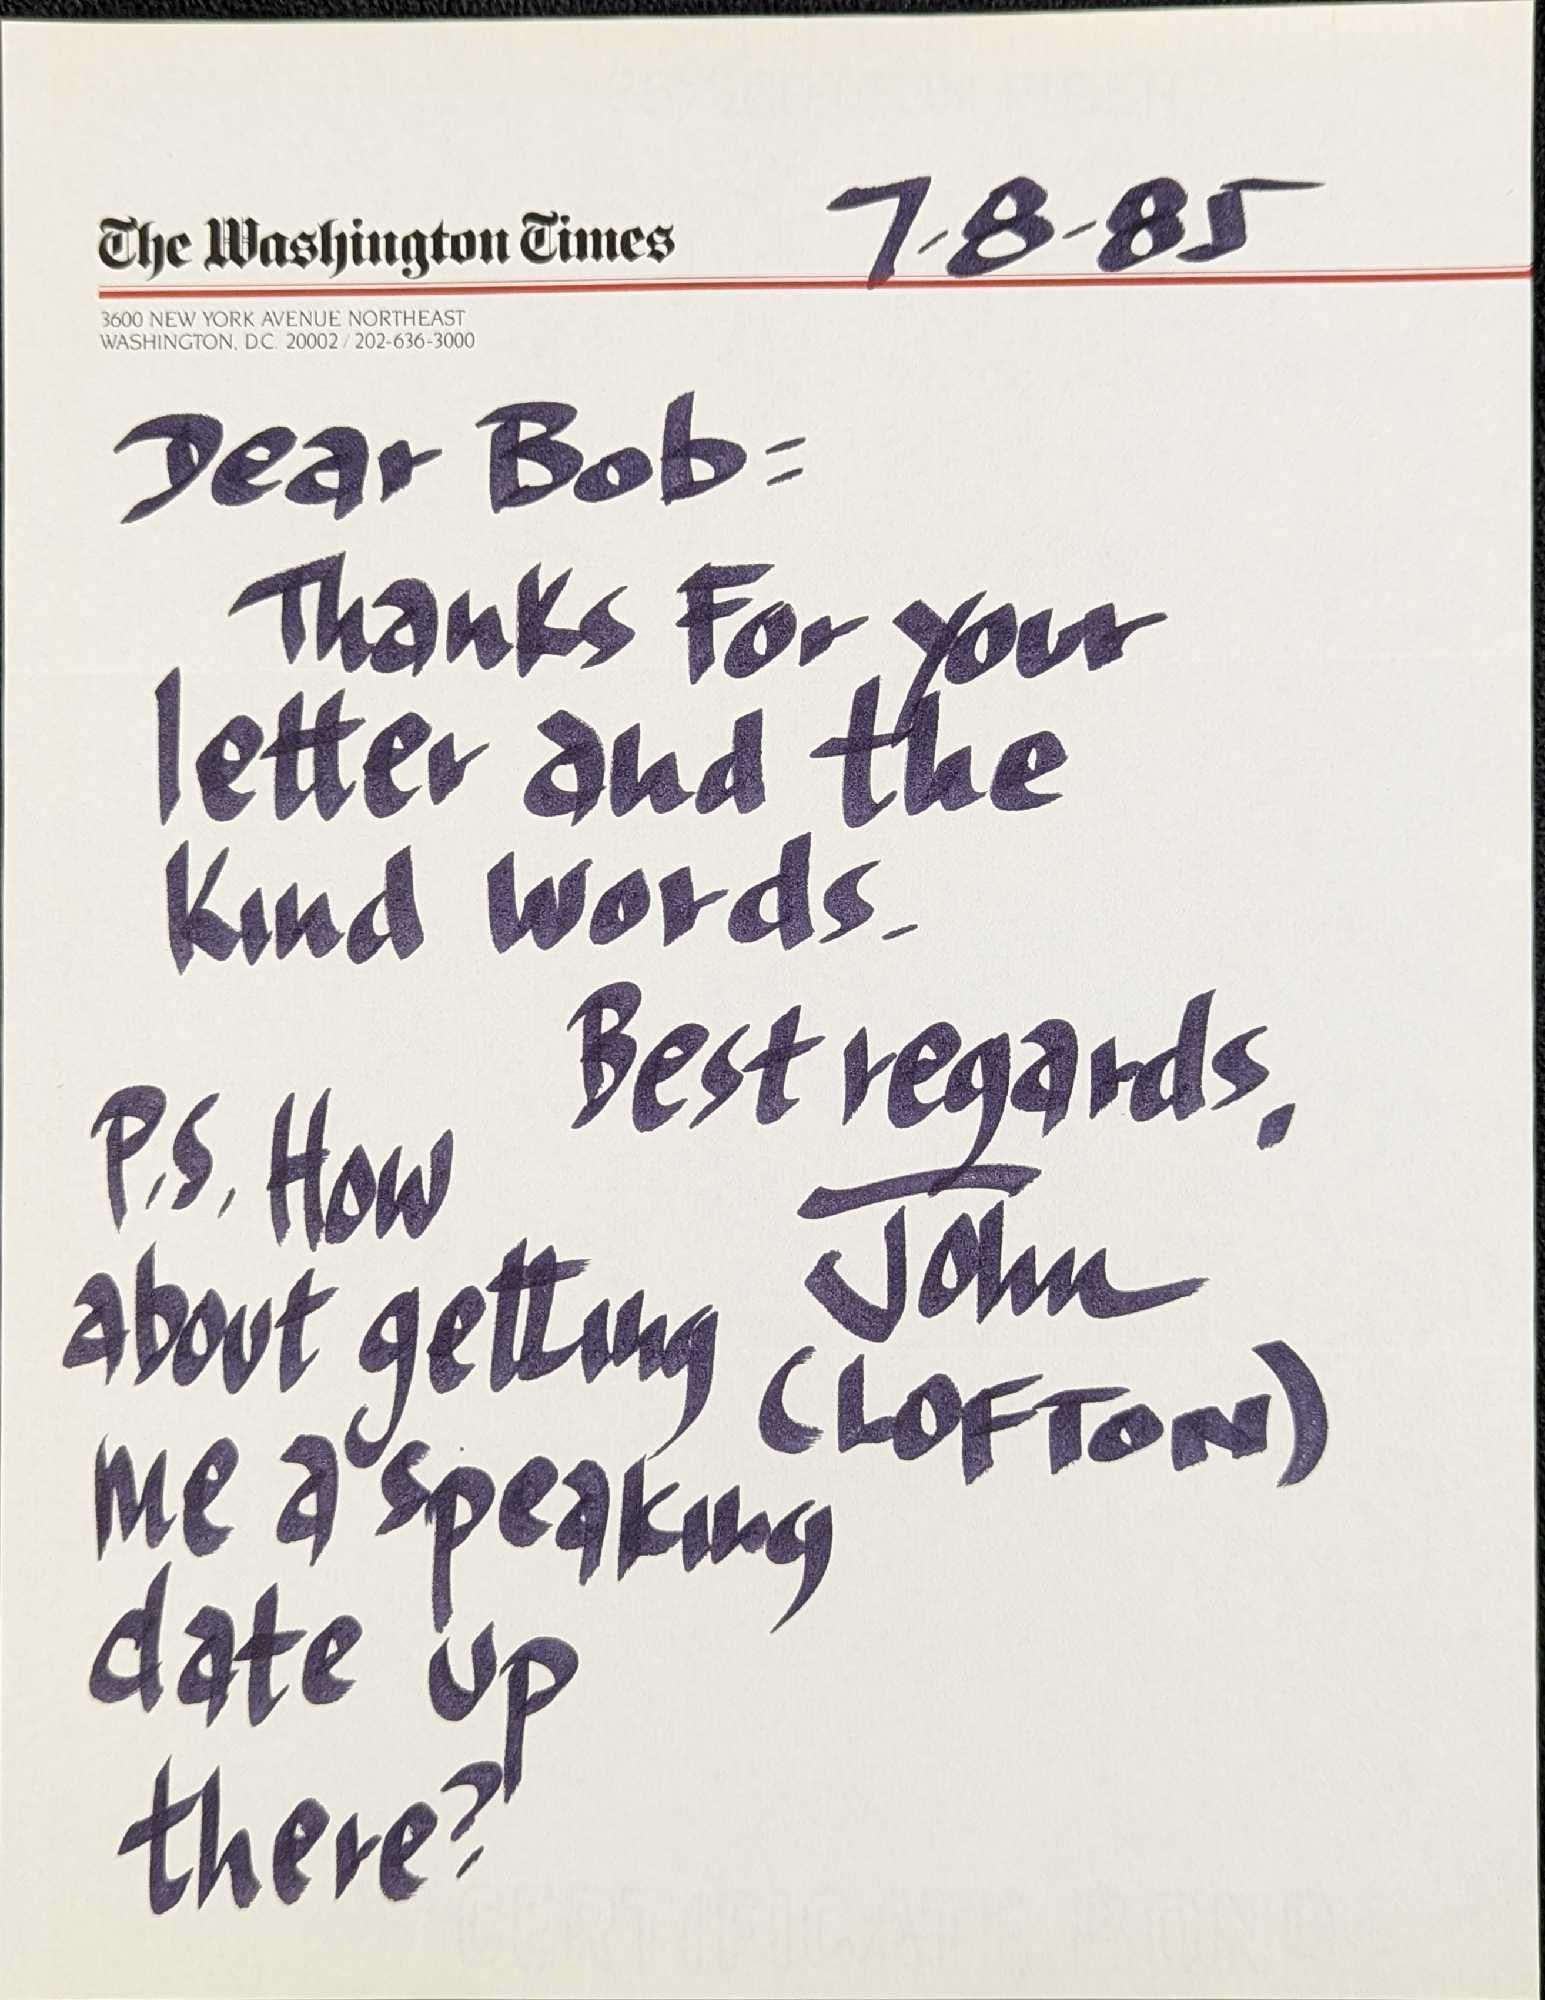 The Washington Times
7-8-85
3600 NEW YORK AVENUE NORTHEAST
WASHINGTON, D.C. 20002 / 202-636-3000
Dear Bob:
Thanks For your
letter and the
Kind words.
Best regards,
John
(LOFTON)
P.S. How
about getting
me a speaking
date up
there?